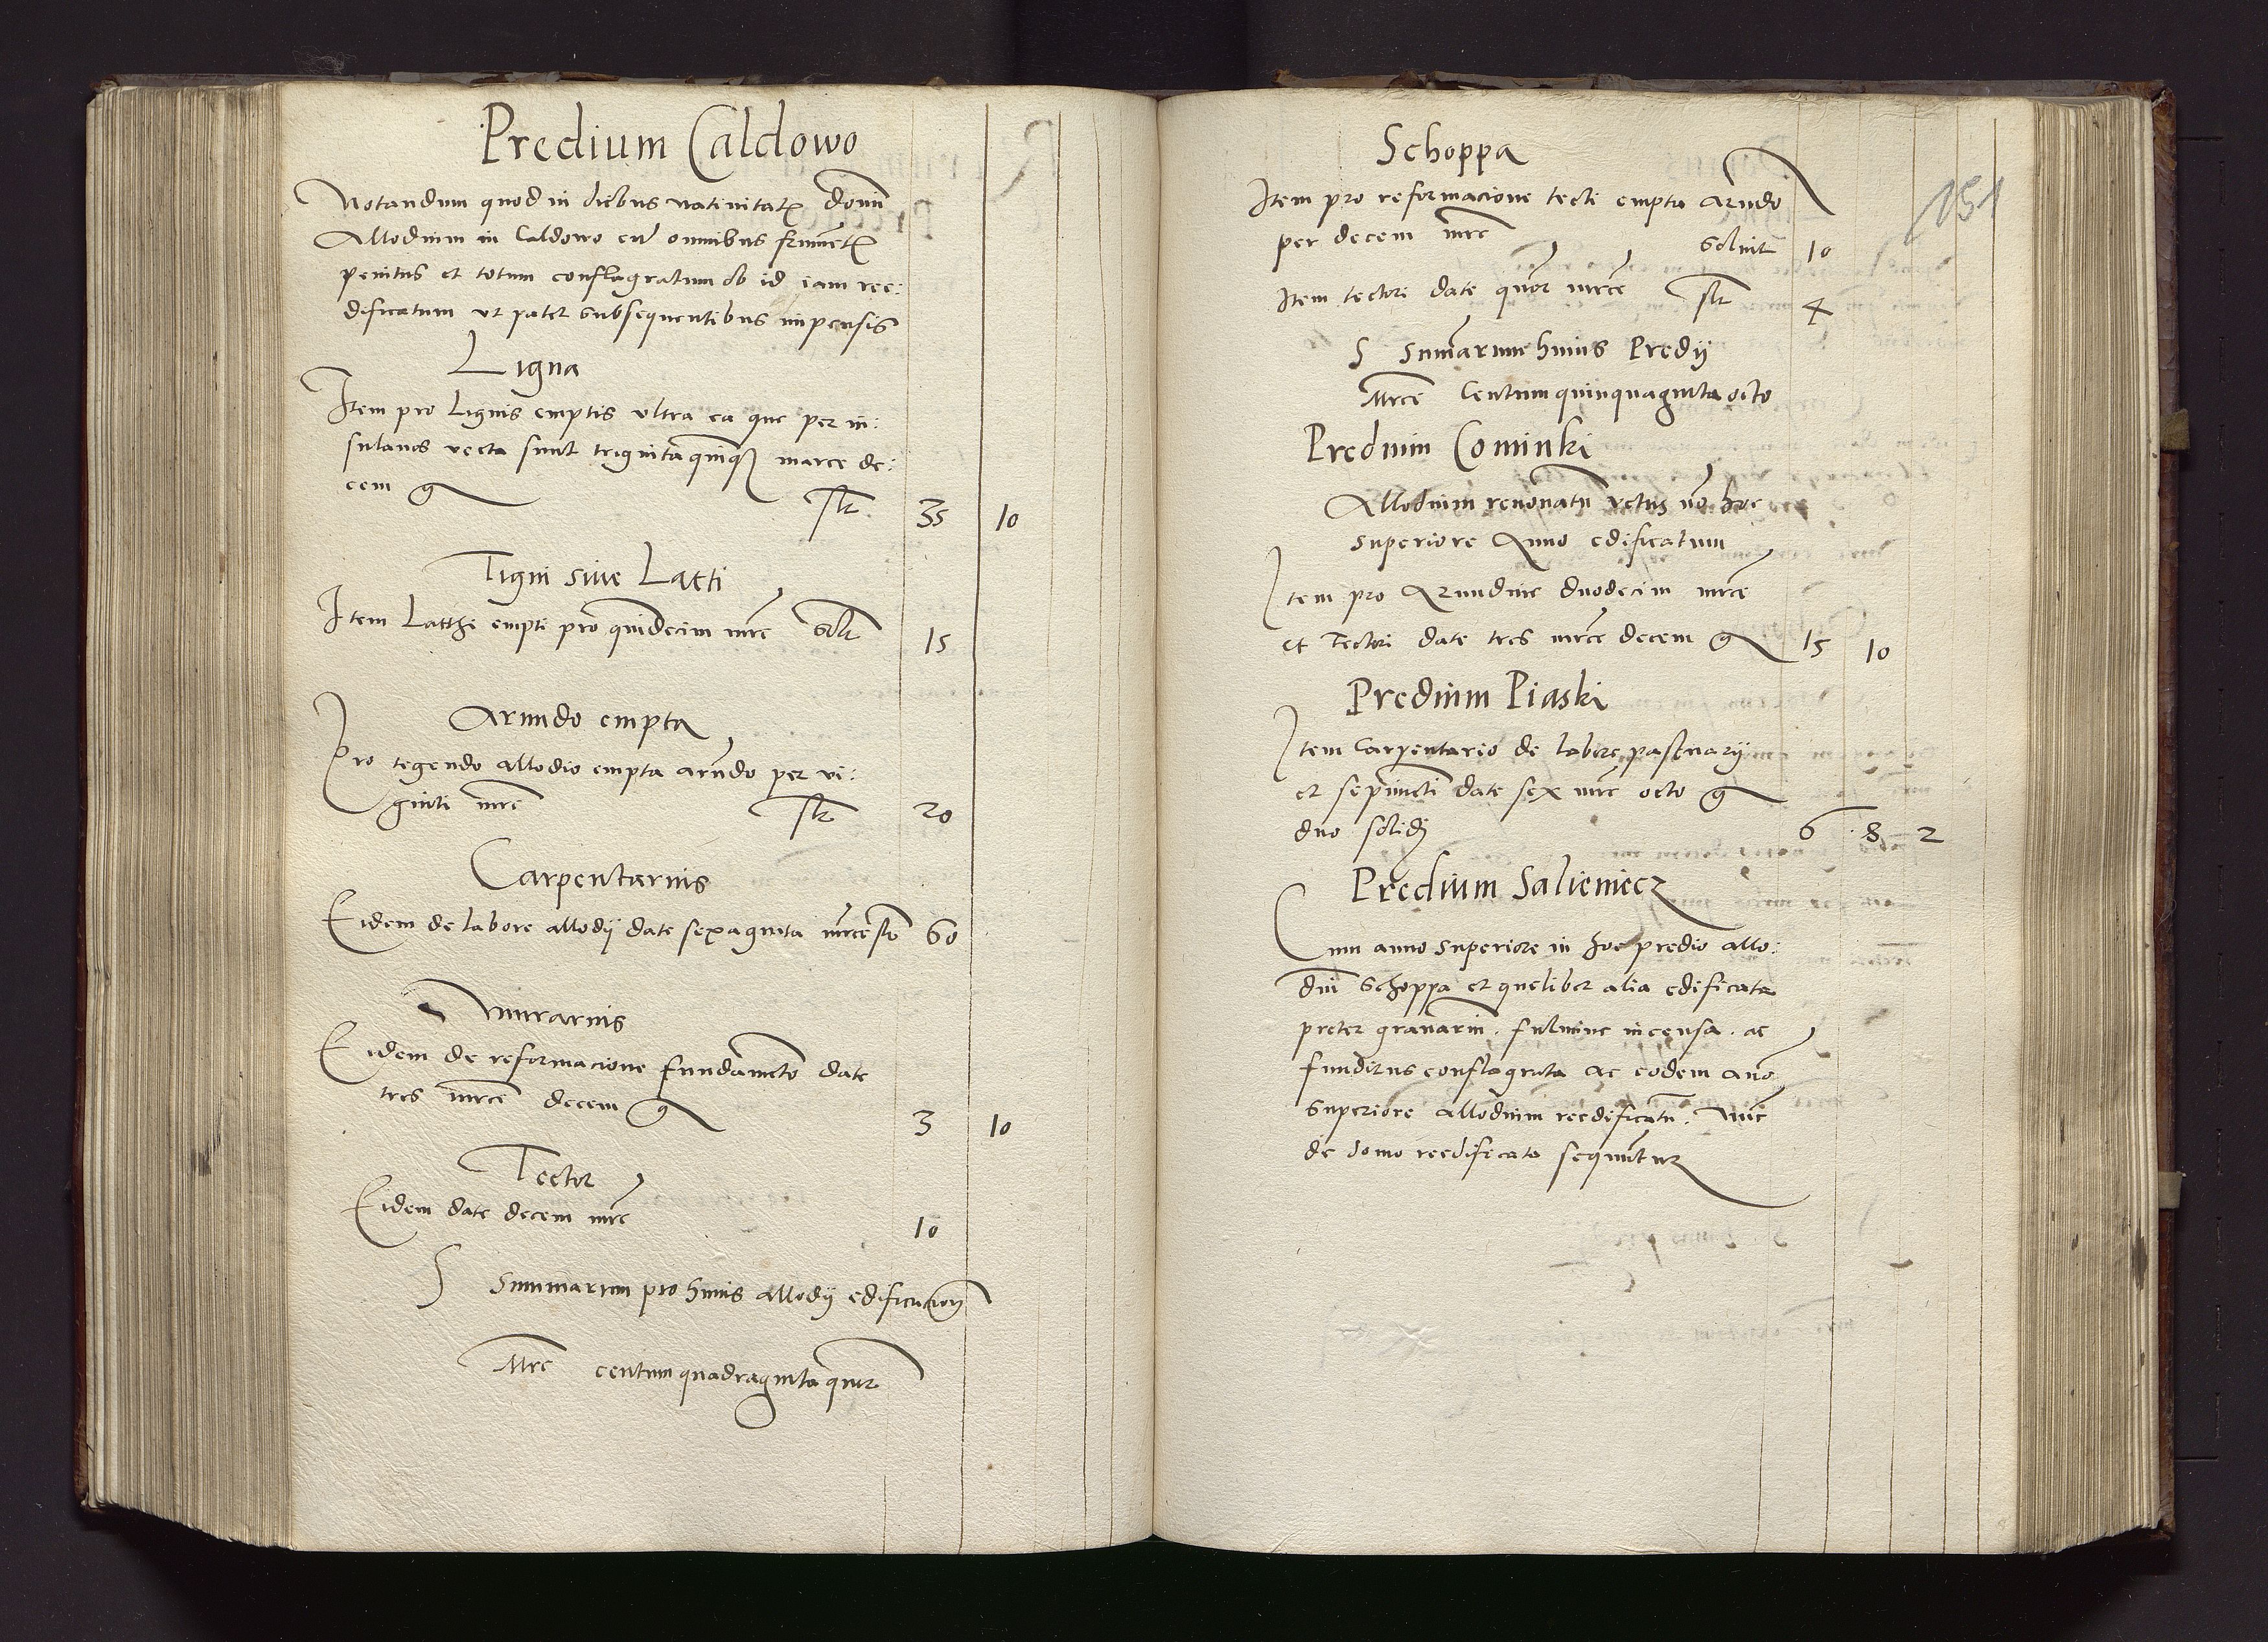 Predium Caldowo
Notandum quod in diebus nativitatꝭ domĩ
Allodium in Caldowo cũ omnibus frumẽtꝭ
penitus et totum conflagratum ob id jam ree:
dificatum ut patet subsequentibus impensis
Ligna
Item pro Lignis emptis ultra ea que per in:
sulanos vecta sunt trigintaquinqꝫ marce de:
cem g
flt 35 10
Tigni sive Latti
Item Latthe empte pro quindecim mrc̃ solt 15
Arundo empta
Pro tegendo allodio empta arũdo per vi:
ginti mrc̃ flt 20
Carpentarius
Eidem de labore allodij date sexaginta mrce 60
Murarius
Eidem de reformacione fundamẽto date
tres mrce decem g 3 10
Tector
Eidem date decem mrc̃ 10
S summarum pro huius allodij edificacionẽ
Mrc̃ centum quadraginta quũr
151
Schoppa
Item pro reformacione tecti empta arũdo
per decem mrc̃ solvit 10
Item tectori date quõr mrcẽ flt 4
S sum̃arum huius Predij
Mrcẽ Centum quinquaginta octo
Predium Cominki
Allodium renovatũ vetus nõ hoc
superiore Anno edificatum
Item pro Arundine duodecim mrcẽ
et Tectori date tres mrcẽ decem g 15 10
Predium Piaski
Item Carpentario de labore pasternarij
et sepimẽti date sex mrc̃ octo g
duo solidj 6 8 2
Predium Salieniecz
Cum anno superiore in hoc predio allo:
diũ Schoppa et quelibet alia edificata
preter granariũ. fulmine incensa. ac
funditus conflagrata ac eodem anõ
superiore Allodium reedificatũ. Nũc
de domo reedificata sequũtur